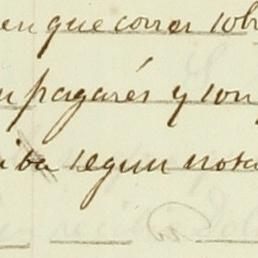 en que correr sobr
pagarés y son
iba segun nota